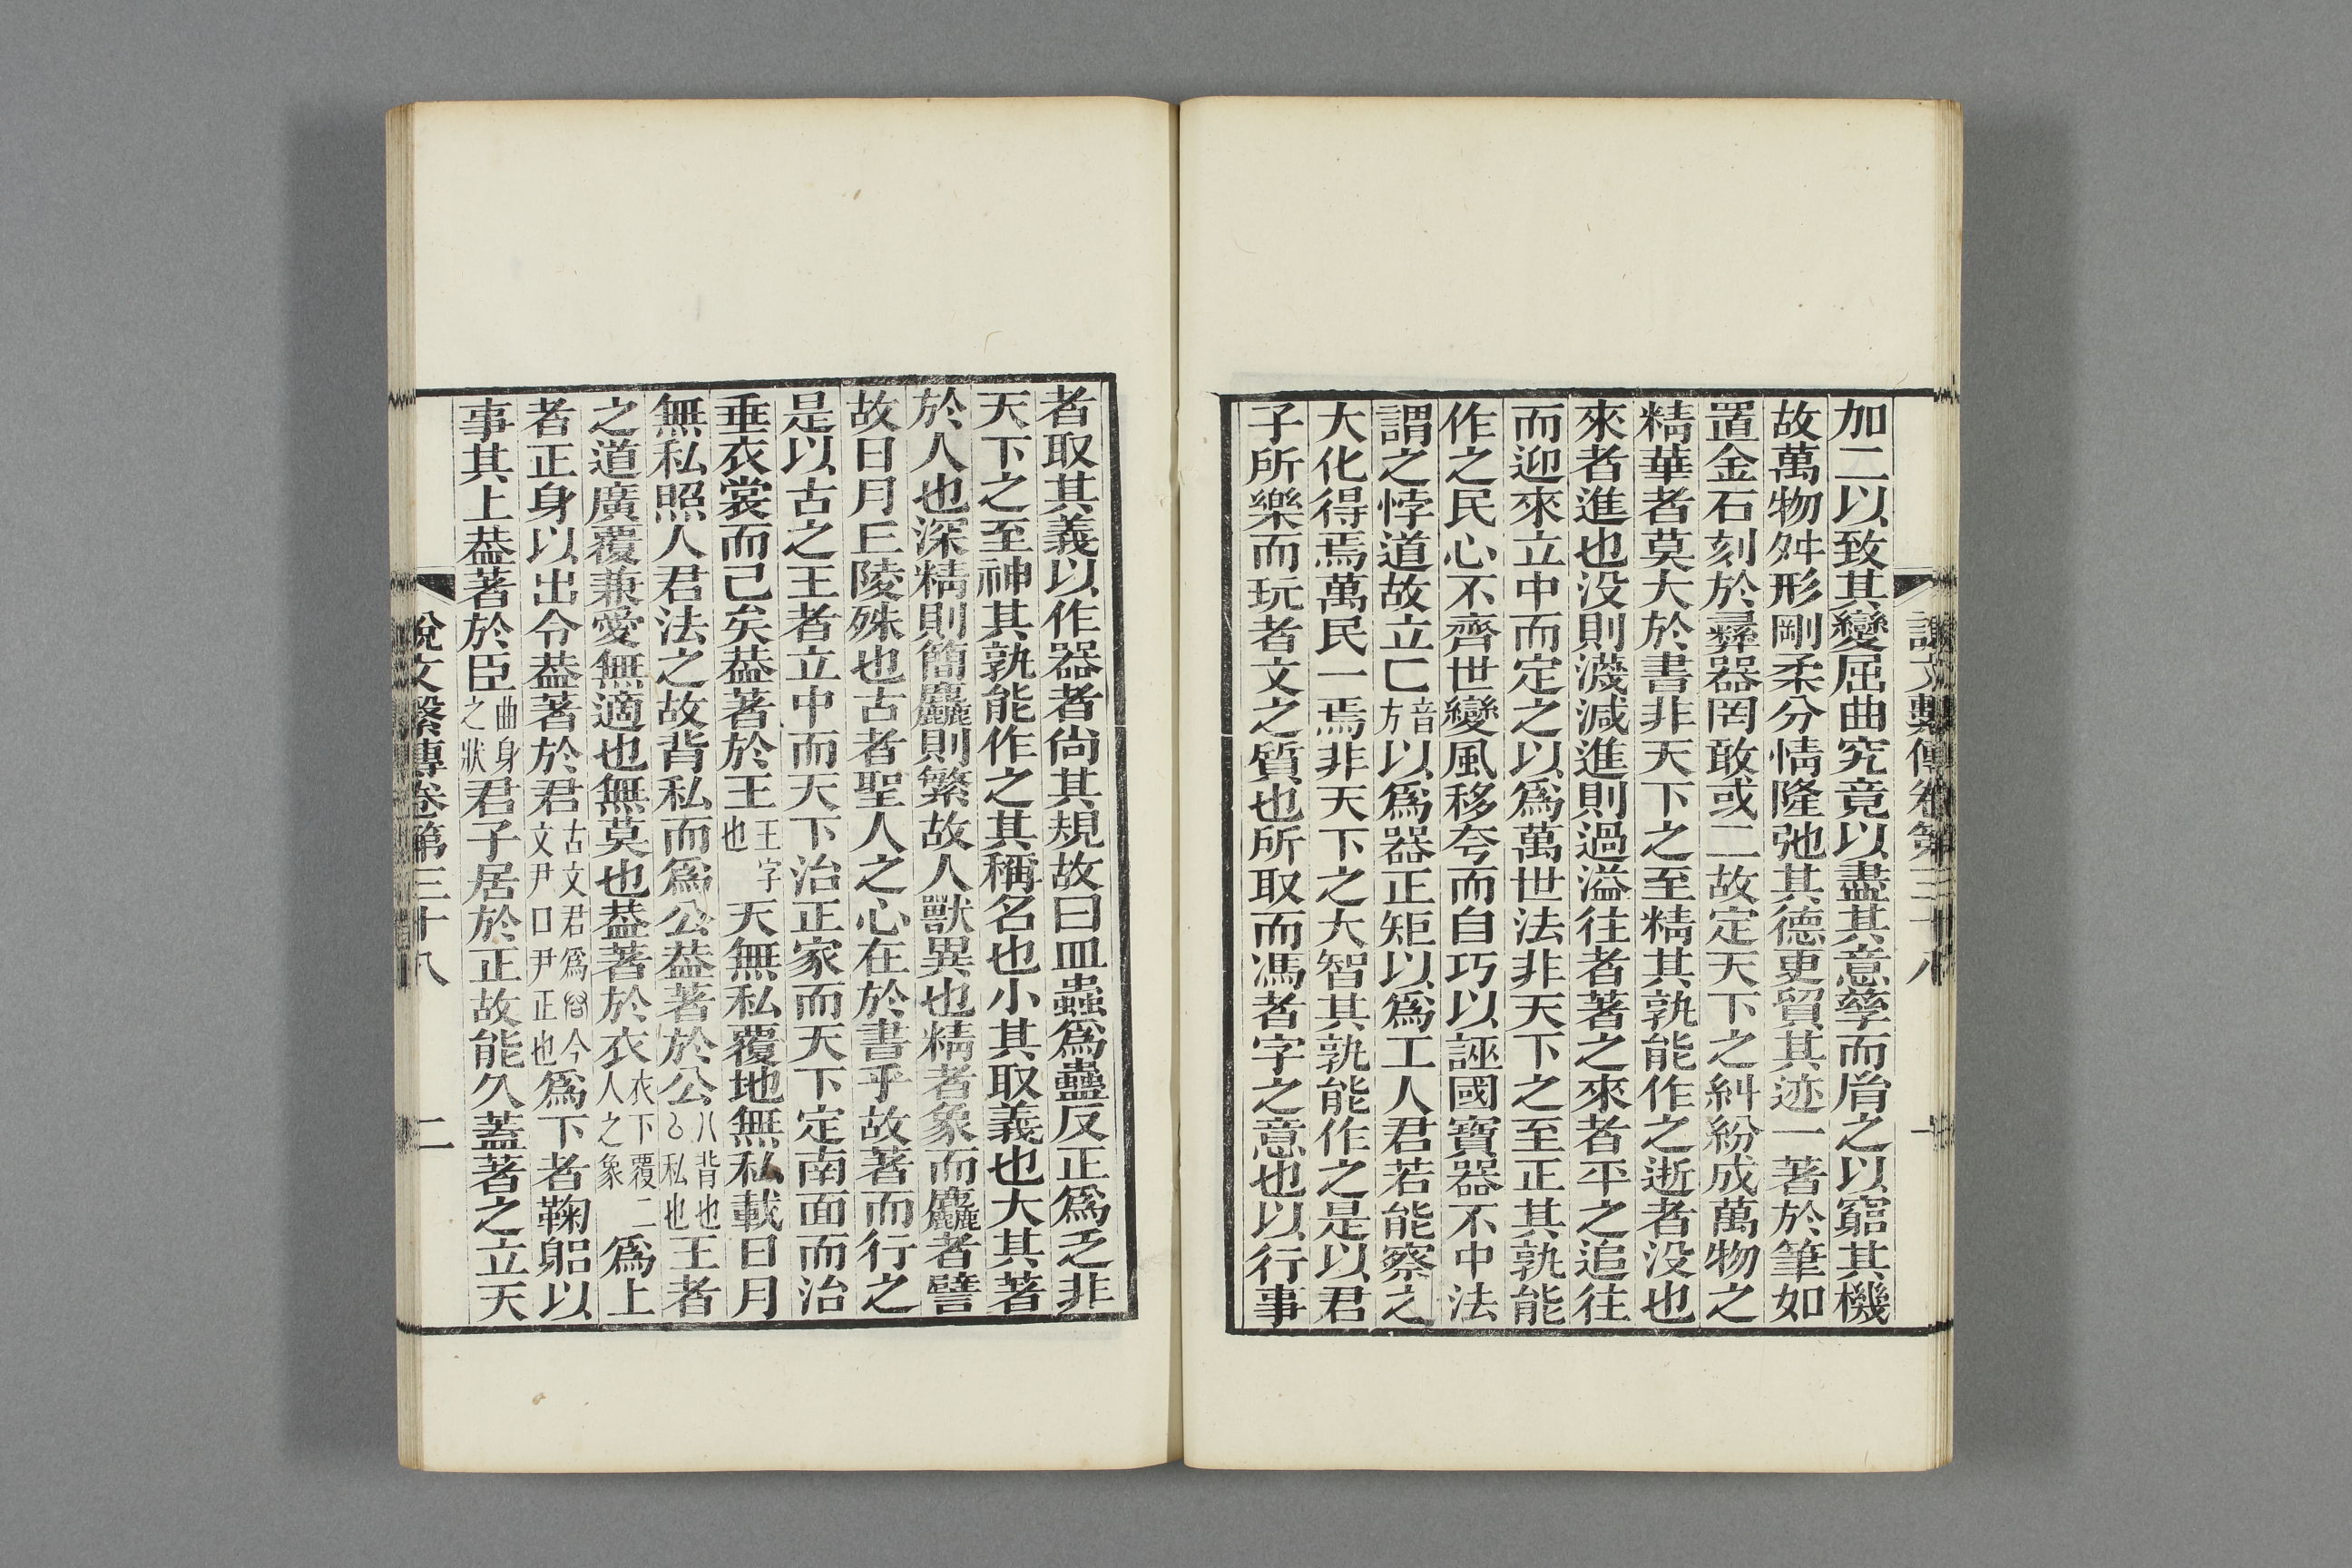 加二以致其變屈曲究竟以盡其意孳而㡿之以窮其機
故萬物舛形剛柔分情隆弛其德更貿其迹一著於筆如
置金石刻於彝器罔敢或二故定天下之糾紛成萬物之
精華者莫大於書非天下之至精其孰能作之逝者没也
來者進也没則濊減進則過溢往者著之來者平之追往
而迎來立中而定之以爲萬世法非天下之至正其孰能
作之民心不齊世變風移夸而自巧以誣國寶器不中法
謂之悖道故立匚音方以爲器正矩以爲工人君若能察之
大化得焉萬民一焉非天下之大智其孰能作之是以君
子所樂而玩者文之質也所取而馮者字之意也以行事
說文繫傳卷第三十八 一
者取其義以作器者尙其規故曰皿蟲爲蠱反正爲乏非
天下之至神其孰能作之其稱名也小其取義也大其著
於人也深精則簡麤則繁故人獸異也精者象而麤者譬
故日月㠀陵殊也古者聖人之心在於書乎故著而行之
是以古之王者立中而天下治正家而天下定南面而治
垂衣裳而已矣葢著於王王字也天無私覆地無私載日月
無私照人君法之故背私而爲公葢著於公八背也㠯私也王者
之道廣覆兼愛無適也無莫也葢著於衣衣下覆二人之象爲上
者正身以出令葢著於君古文君爲𠱭今文尹口尹正也爲下者鞠躳以
事其上葢著於臣曲身之狀君子居於正故能久蓋著之立天
說文繫傳卷第三十八 二